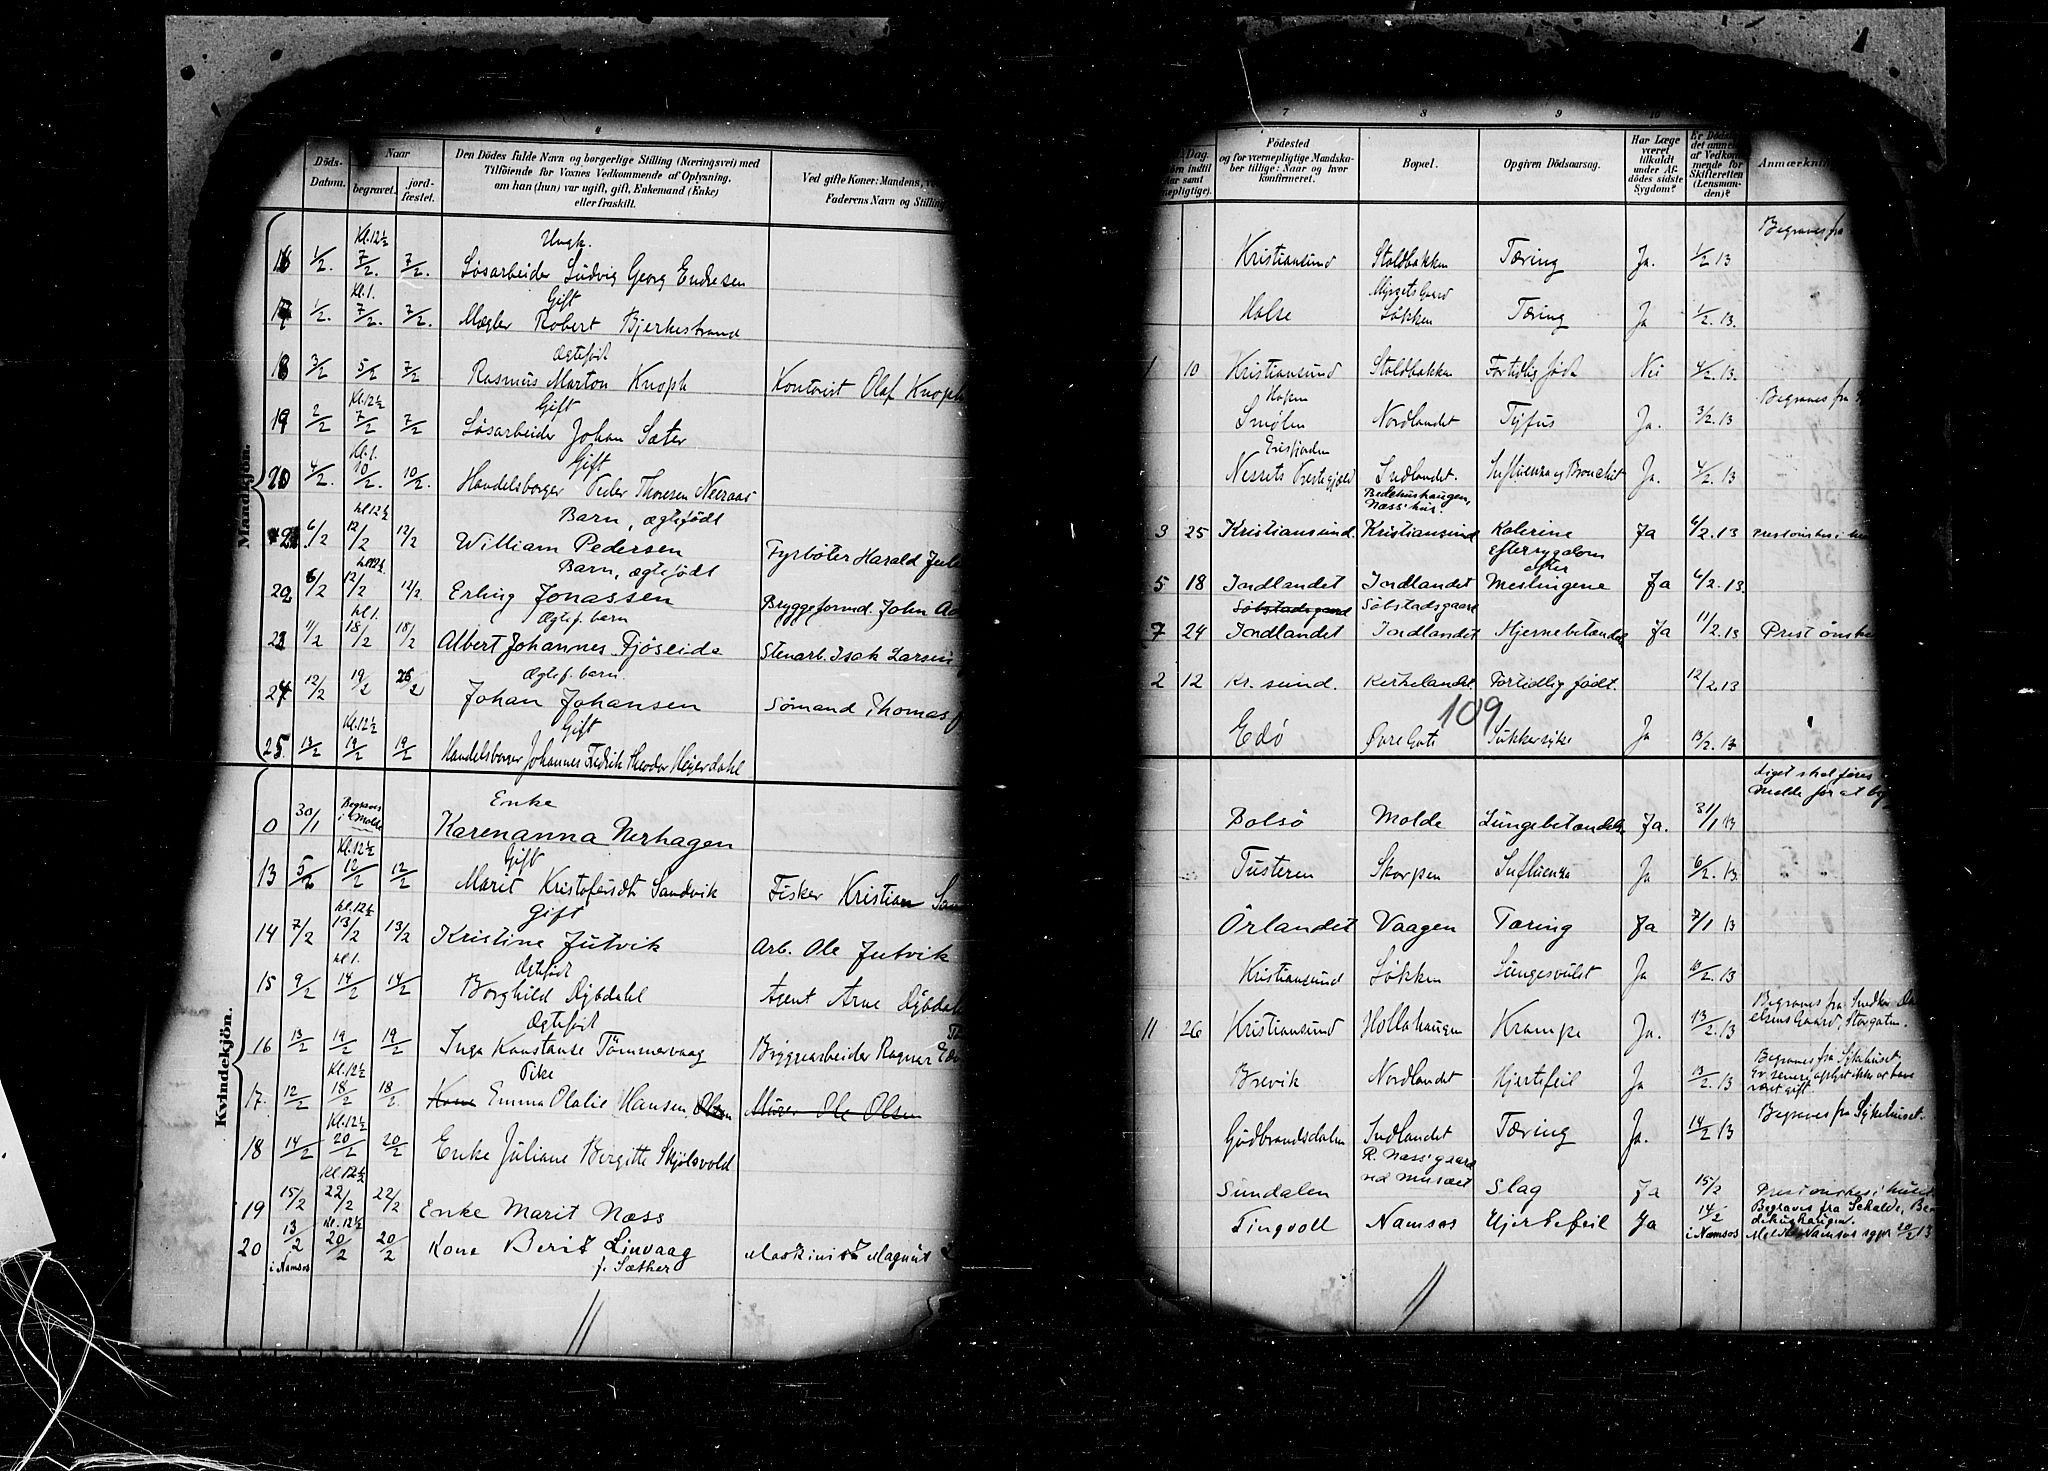 4
Döds-
Datum.
Naar
begravet.
jord-
fæstet.
Den Dödes fulde Navn og borgerlige Stilling (Næringsvei) med
Tilföiende for Voxnes Vedkommende af Oplysning,
om han (hun) var ugift, gift, Enkemand (Enke)
eller fraskilt.
Ved gifte Koner: Mandens, ved
Faderens Navn og Stilling
Mandkjön.
Ungk.
Kl. 12½
16 1/2. 7/2. 7/2. Løsarbeider Ludvig Georg Endresen
Kl. 1. Gift
17 1/2. 7/2. 7/2. Mægler Robert Bjerkestrand
Ægtefødt
18 3/2 5/2 7/2 Rasmus Marton Knoph Kontorist Olaf Knoph
Kl. 12½ Gift
19 2/2 7/2 7/2 Løsarbeider Johan Sæter
Kl. 1. Gift
20 4/2. 10/2. 10/2. Handelsborger Peder Thoresen Neeraas
kl 12½ Barn, ægtefödt
21. 6/2 12/2 12/2 William Pedersen Fyrböter Harald
kl 12½. Barn, ægtefödt
22 6/2 12/2 12/2 Erling Jonassen Bryggeformd. John
kl 1. Ægtef. barn
23 11/2 18/2 18/2 Albert Johannes Fjöseide Stenarb. Isak Larsen
Ægtef. barn.
24 12/2 19/2 Johan Johansen Sømand Thomas
Kl. 12½ Gift
25. 13/2 19/2 19/2 Handelsborger Johannes Fredrik Theodor Heyerdahl
Kvindekjön.
Enke
0 30/1 Begraves i Molde Karenanna Nerhagen
Kl. 12½ Gift
13 5/2 12/2 12/2 Marit Kristofersdtr Sandvik Fisker Kristian
kl. 12½ Gift
14 7/2 13/2 13/2 Kristine Jutvik Arb. Ole Jutvik
kl 1. Ægtefödt
15 9/2 14/2 14/2 Borghild Dybdahl Agent Arne Dybdahl
Ægtefödt
16 13/2 19/2 19/2 Inga Konstanse Tömmervaag Bryggearbeider Ragnar
Kl. 12½ Pike
17. 12/2 18/2 18/2. Kone Emma Olalie Hansen Olsen Murer Ole Olsen
Kl. 12½
18 14/2 20/2 20/2 Enke Juliane Birgitte Skjölsvold
kl. 12½
19 15/2 22/2 22/2 Enke Marit Næss
Kl. 12½
20 13/2 20/2 20/2 Kone Berit Linvaag Maskinist Magnus
i Namsos f. Sæther
7
8
9
10
Dag.
Födested
og for værnepligtige Mandska-
ber tillige: Naar og hvor
konfirmeret.
Bopæl.
Opgiven Dödsaarsag.
Har Læge
været
tilkaldt
under Af-
dödes sidste
Sygdom?
af Vedkom-
mende for
Skifteretten
(Lensman-
den)?
Anmærknin
Begraves fra
Kristiansund Stoldbakken Tæring Ja. 1/2 13
Halse Løkken Tæring Ja 1/2. 13.
1 10 Kristiansund Stoldbakken Fortidlig født Nei 4/2. 13.
Hopen Begraves fra
Smølen Nordlandet Tyfus Ja. 3/2. 13
Erisfjorden
Nessets Prestegjeld Indlandet. Influenza og Bronchit Ja. 4/2. 13
3 25 Kristiansund. Kristiansund Katerine Ja 6/2. 13
eftersygdom
efter
5 18 Indlandet Indlandet Meslingene Ja 6/2. 13.
Søbstadsgaard Söbstadsgaard
7 24 Indlandet Indlandet Hjernebetændelse Ja 11/2. 13 Prest ønskes
2 12 Kr. sund. Kirkelandet. Fortidlig født. 12/2. 13
109
Edø Øvre Gate Sukkersyke Ja 13/2. 13
Liget skal føres
Molde for at
Bolsö Molde Lungebetændelse Ja. 31/1 13
Tusteren Skorpen Influenza Ja 6/2. 13.
Örlandet Vaagen Tæring Ja 7/1 13
Kristiansund Løkken Lungesvulst Ja 10/2. 13
11 26 Kristiansund Hollahaugen Krampe Ja. 13/2. 13 Begraves fra
Gaard, Storgaten.
Brevik Nordlandet Hjertefeil Ja 13/2. 13 Begraves fra Sykehuset.
været gift.
Gudbrandsdalen Indlandet Tæring Ja. 14/2 13 Begraves fra Sykehuset.
R. Næss' gaard
ved museet
Sundalen Slag Ja 15/2 Prest ønskes i huset.
Tingvoll Namsos Hjertefeil Ja 14/2 Begraves fra
i Namsos